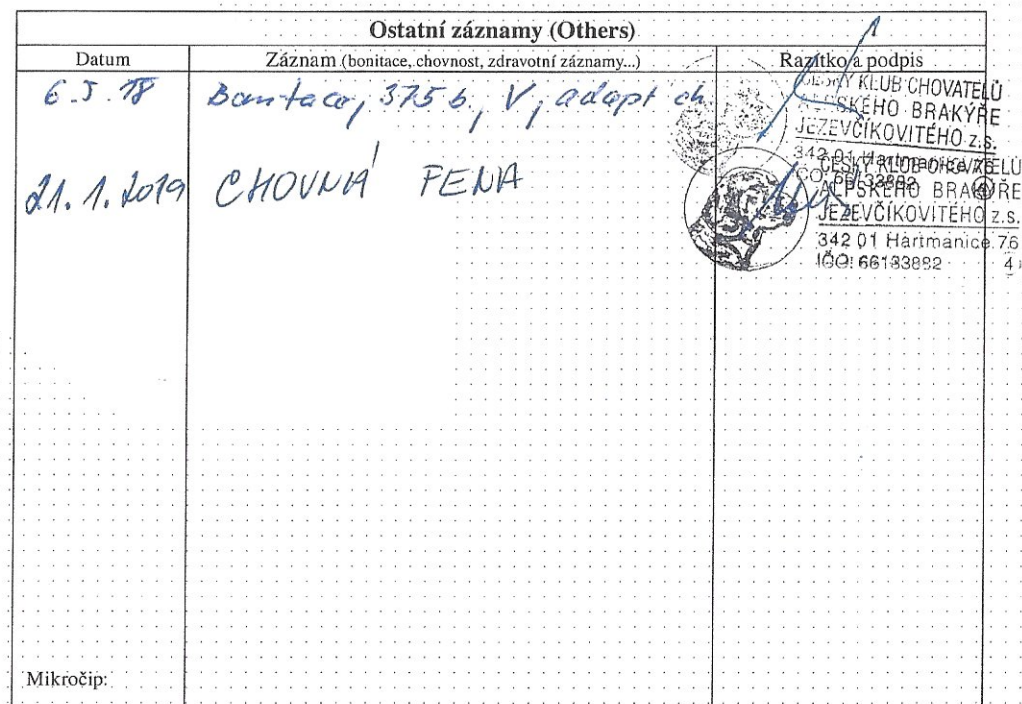 Ostatní záznamy (Others)
Datum Záznam (bonitace, chovnost, zdravotní záznamy...) Razítko a podpis
6.5.18 Bonitace, 375 b., V, adept ch
KLUB CHOVATELŮ
BRAKÝŘE
JEZEVČÍKOVITÉHO z.s.
342 01 Hartmanice 76
21.1.2019 CHOVNÁ FENA
ČESKÝ KLUB CHOVATELŮ
ALPSKÉHO BRAKÝŘE
JEZEVČÍKOVITÉHO z.s.
342 01 Hartmanice 76
IČO: 66133882 4
Mikročip: